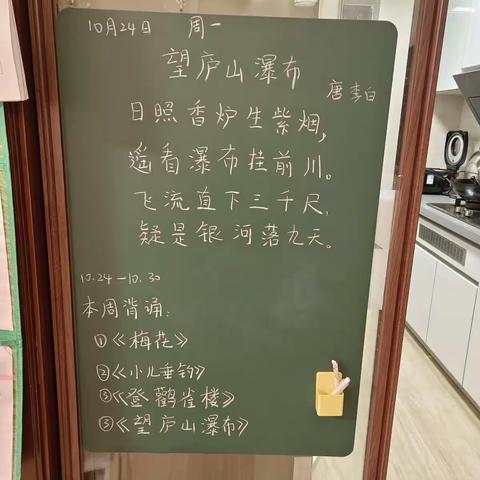 10月24日 周一
望庐山瀑布
唐 李白
日照香炉生紫烟,
遥看瀑布挂前川。
飞流直下三千尺,
疑是银河落九天。
10.24-10.30
本周背诵:
①《梅花》
②《小儿垂钓》
③《登鹳雀楼》
③《望庐山瀑布》